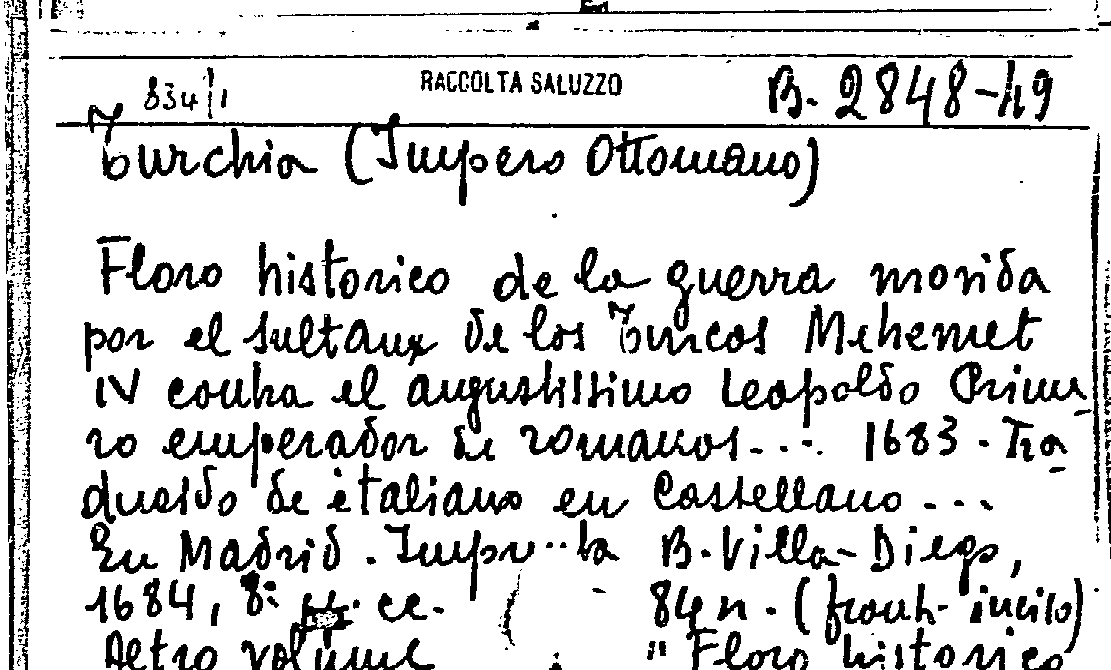 834/1 RACCOLTA SALUZZO B. 2848-49
Turchia (Impero Ottomano)
Floro historico de la guerra movida
por el sultan de los Turcos Mehemet
IV contra el augustissimo Leopoldo Prime-
ro emperador de romanos... 1683. Tra-
duzido de italiano en Castellano...
En Madrid. Impr... la B. Villa-Diego,
1684, 8° cc. 84 n. (front. inciso)
Altro volume " Floro historico